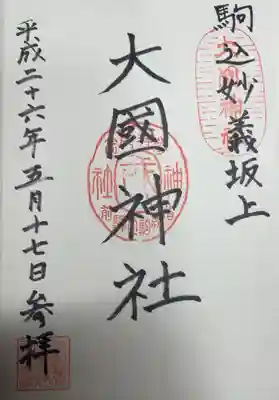 駒込妙義坂上
大國神社
平成二十六年五月十七日参拝